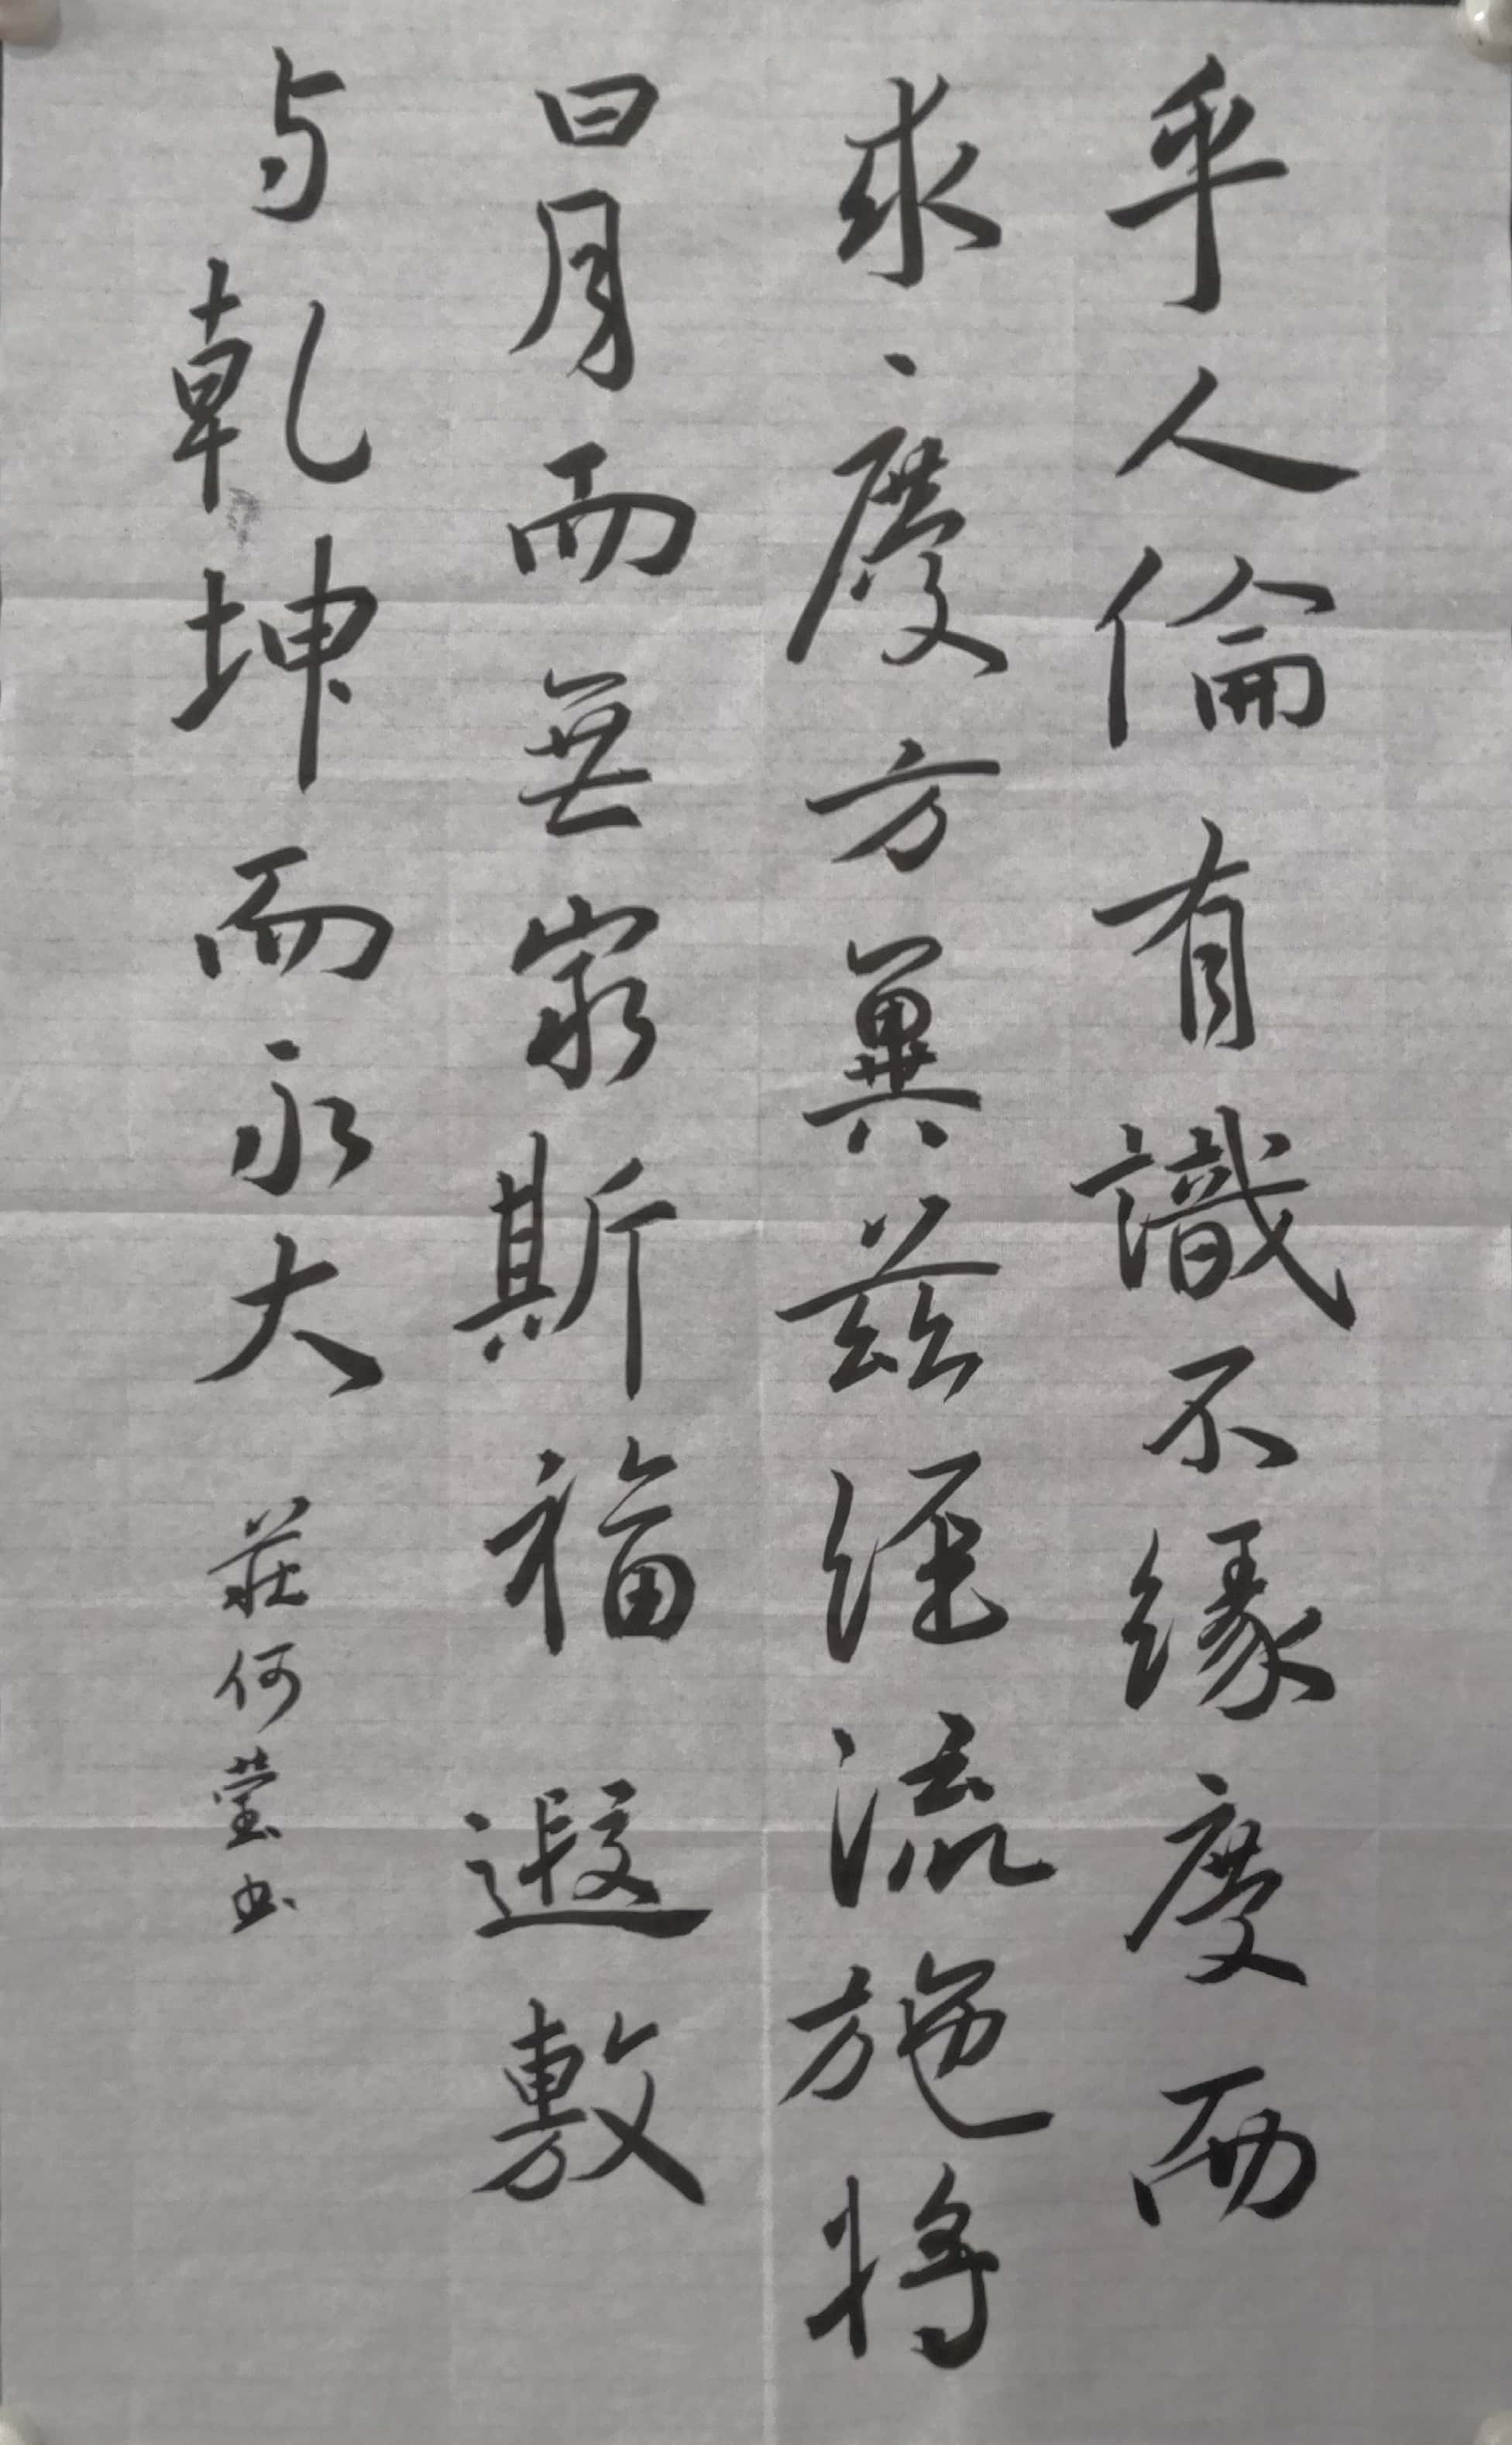 乎人倫有識不緣慶而
求慶方冀茲經流施將
日月而無窮斯福遐敷
与乾坤而永大 莊何瑩书